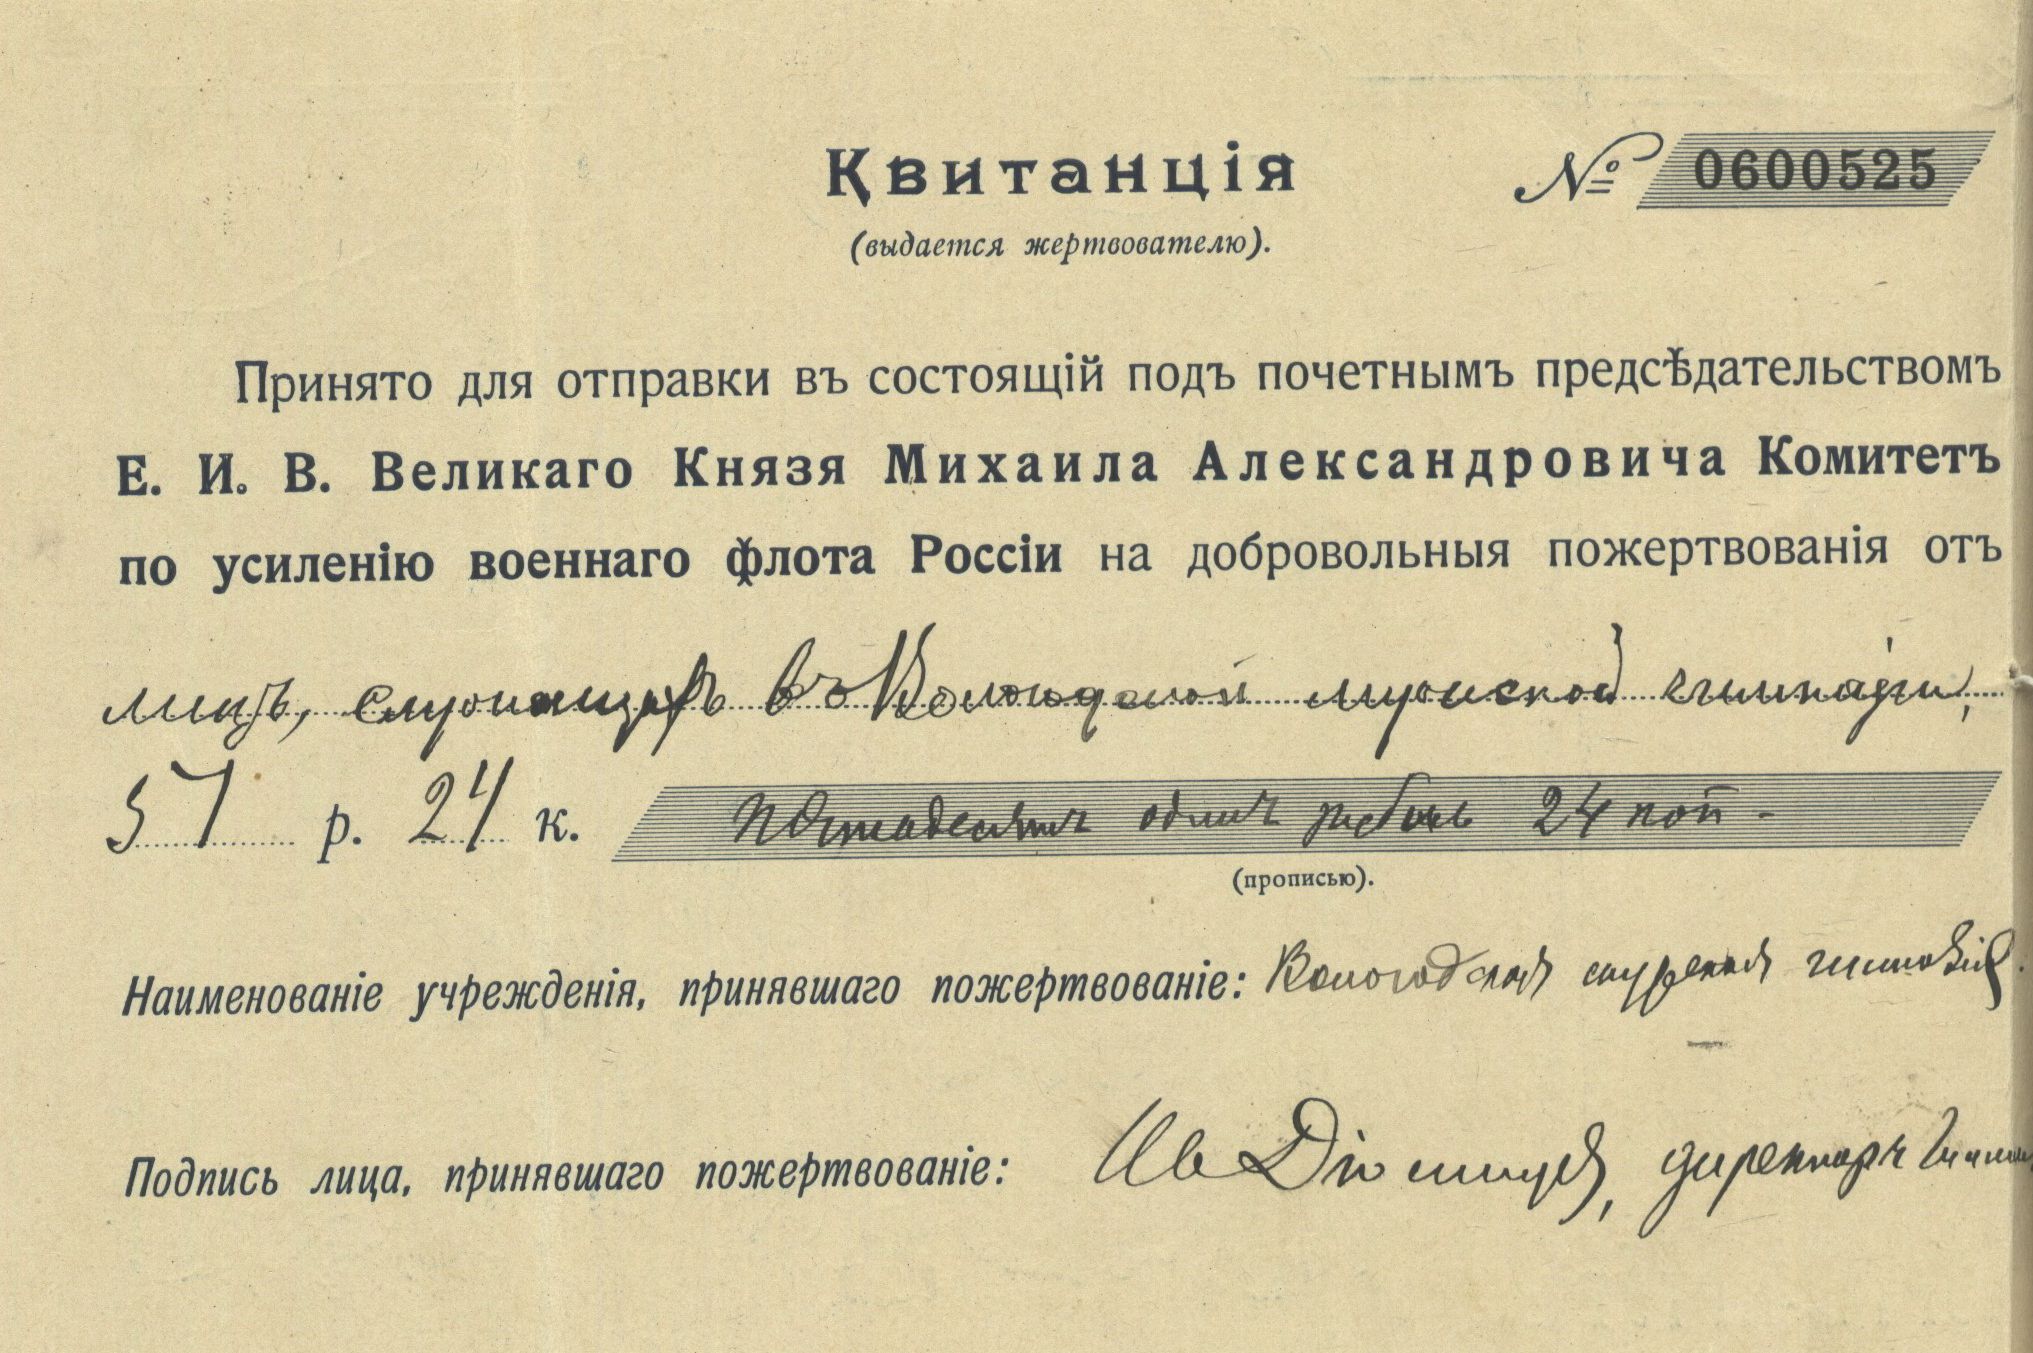 Квитанція № 0600525
(выдается жертвователю).
Принято для отправки въ состоящій подъ почетнымъ предсѣдательствомъ
Е. И. В. Великаго Князя Михаила Александровича Комитетъ
по усиленію военнаго флота Россіи на добровольныя пожертвованія отъ
лицъ, служащихъ въ Вологодской мужской гимназіи,
51 р. 24 к. Пятьдесятъ одинъ рубль 24 коп -
(прописью).
Наименованіе учрежденія, принявшаго пожертвованіе: Вологодская мужская гимназія.
Подпись лица, принявшаго пожертвованіе: Ив , директоръ